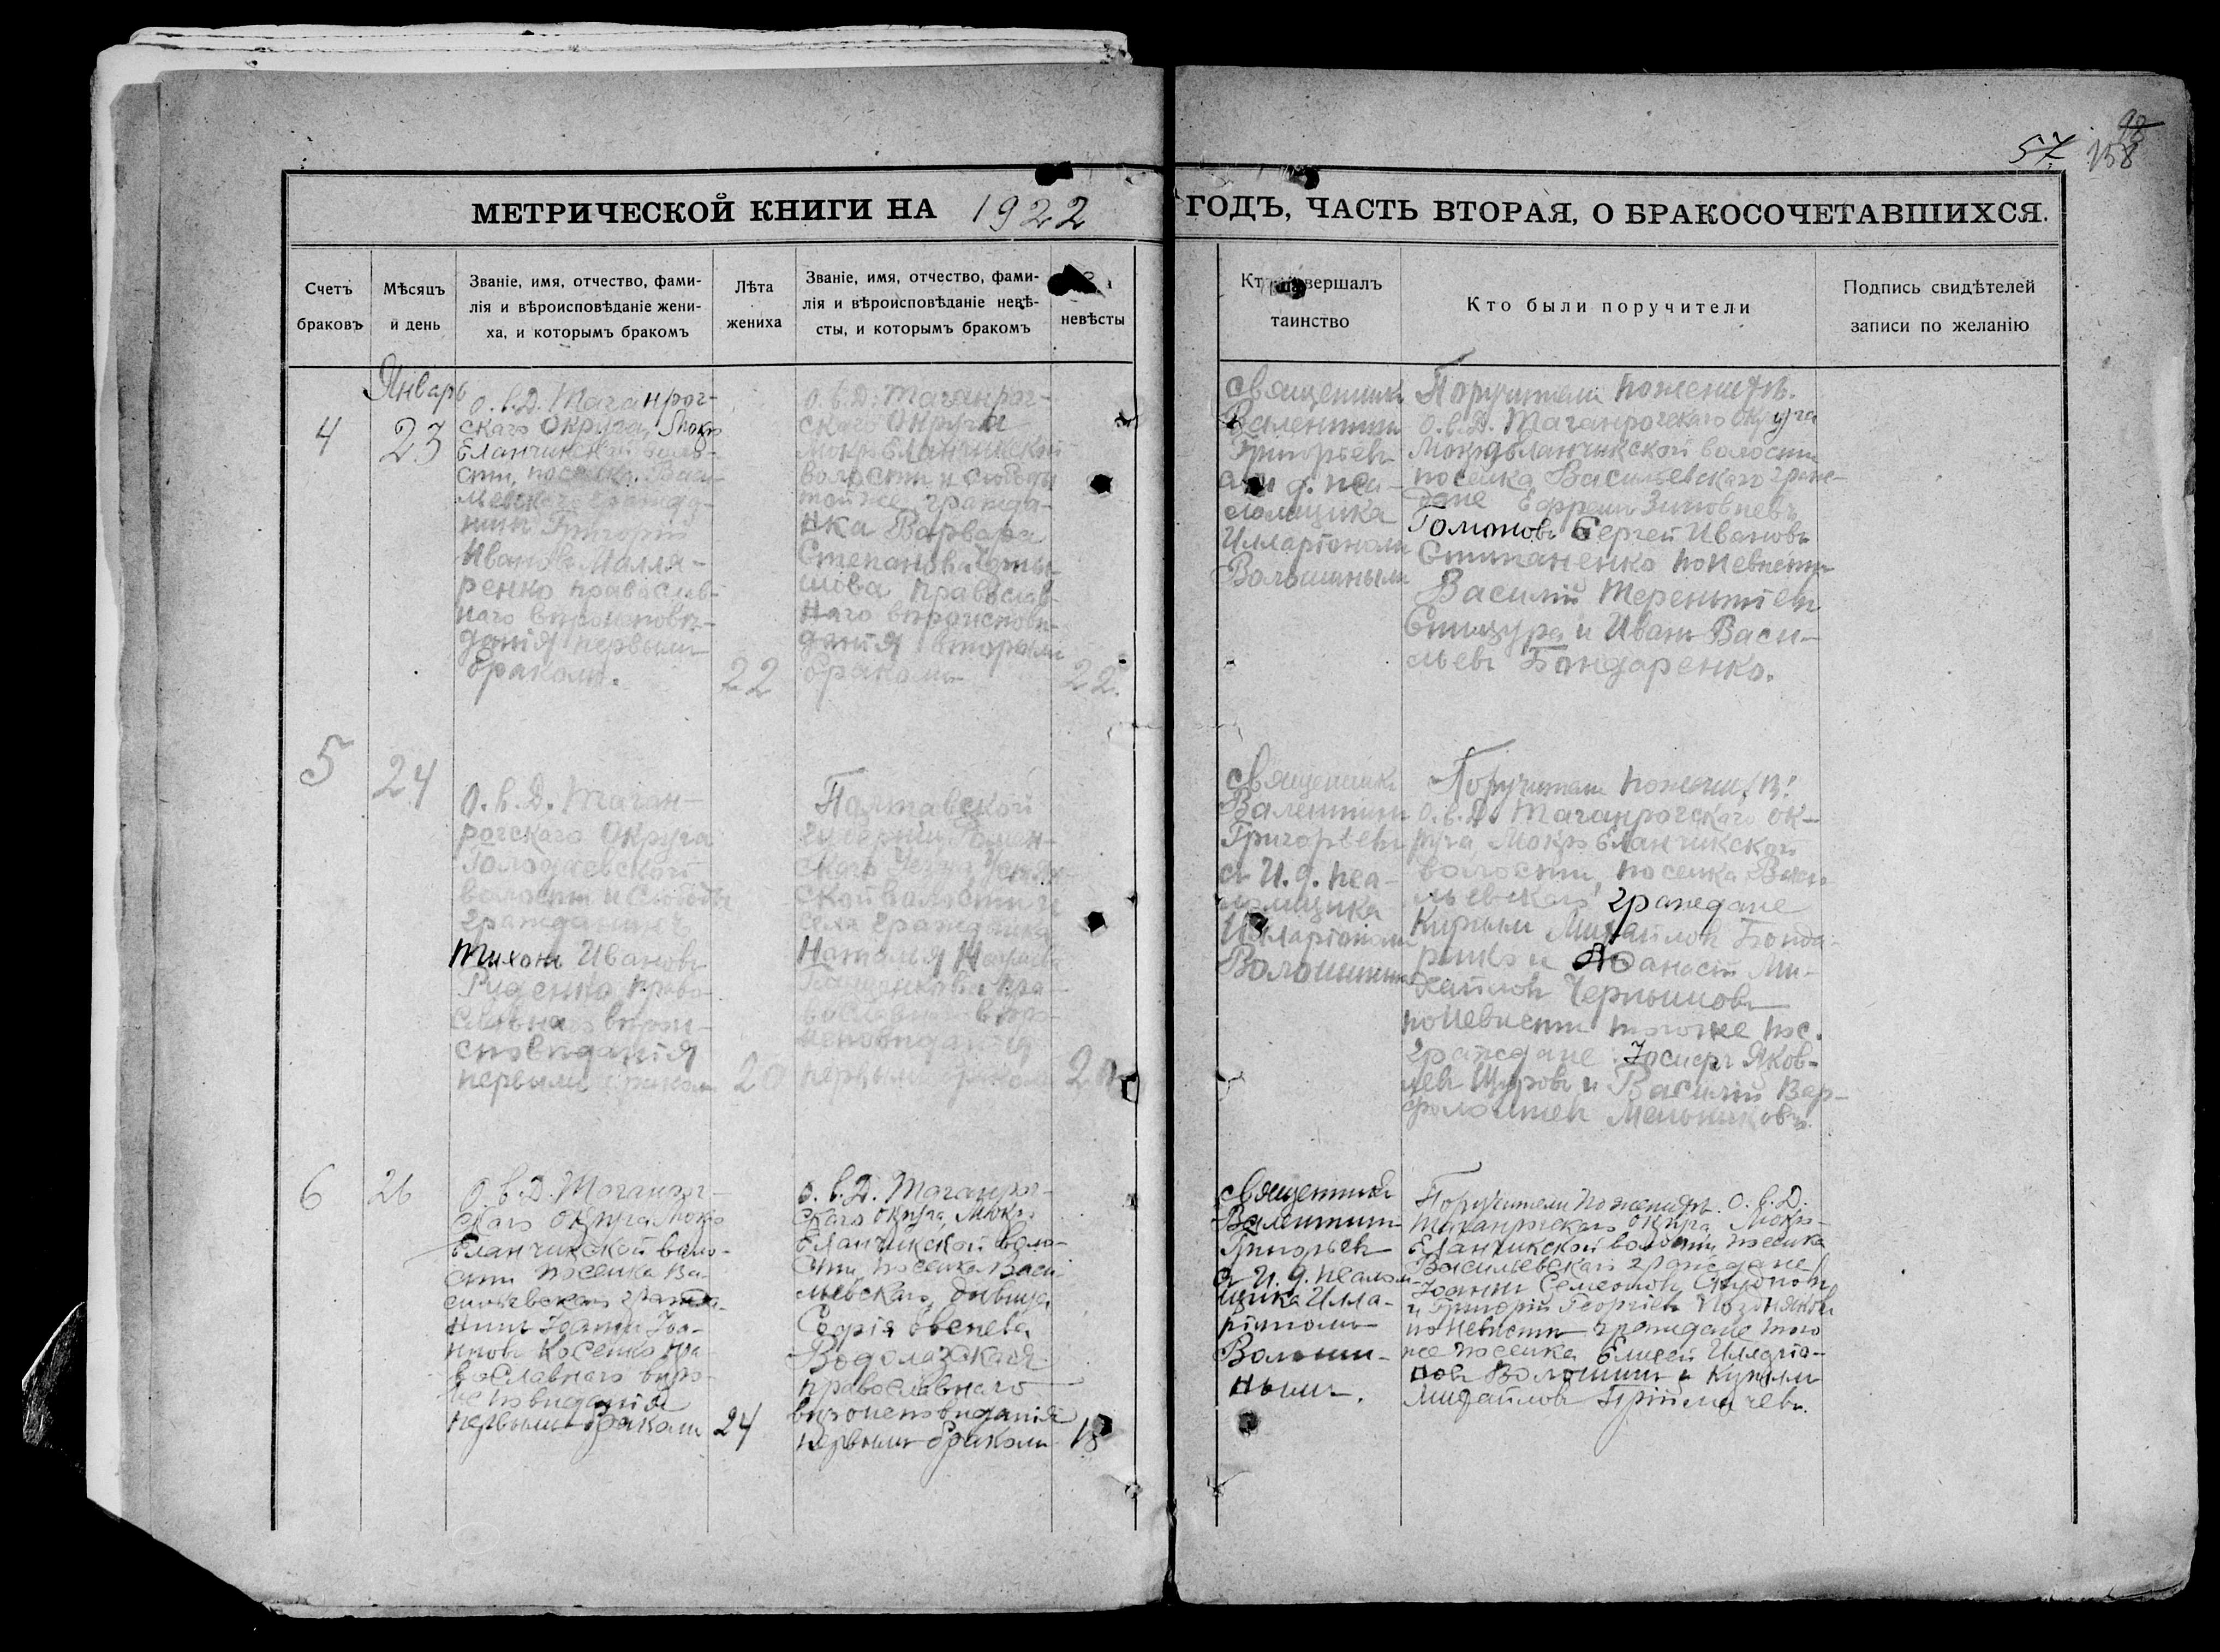 57. 98
158
МЕТРИЧЕСКОЙ КНИГИ НА 1922 ГОДЪ, ЧАСТЬ ВТОРАЯ, О БРАКОСОЧЕТАВШИХСЯ.
Счетъ
браковъ
Мѣсяцъ
и день
Званіе, имя, отчество, фами-
лія и вѣроисповѣданіе жени-
ха, и которымъ бракомъ
Лѣта
жениха
Званіе, имя, отчество, фами-
лія и вѣроисповѣданіе невѣ-
сты, и которымъ бракомъ
невѣсты
Кто совершалъ
таинство
Кто были поручители
Подпись свидѣтелей
записи по желанію
Январь
4
23
О. в. Д. Таганрог-
скаго Округа, Мокро
Еланчикской воло-
сти, поселка Васи-
льевскаго гражда-
нинъ Григорій
Ивановъ Малля-
ренко православ-
наго вѣроисповѣ-
данія первымъ
бракомъ.
22
О. в. Д. Таганрог-
скаго Округа
Мокро Еланчикской
волости и слободы
тойже гражда-
нка Варвара
Степанова
православ-
наго вѣроисповѣ-
данія вторымъ
бракомъ
22.
Священникъ
Валентинъ
Григорьевъ
а и д. пса-
ломщика
Илларіономъ
Волошинымъ
Поручители по женихѣ.
О. в. Д. Таганрогскаго Округа
Мокроеланчикской волости
поселка Васильевскаго граж-
дане Ефремъ Зиновьевъ
Гомоновъ Сергей Ивановъ
Степаненко по невѣстѣ
Василій Терентьевъ
и Иванъ Васи-
льевъ Бондаренко.
5
24
О. в. Д. Таган-
рогскаго Округа
Голодаевской
волости и слободы
гражданинъ
Тихонъ Ивановъ
Руденко право-
славнаго вѣрои-
сповѣданія
первымъ бракомъ
20
Полтавской
губерніи Ромен-
скаго Уезда
ской волости и
села гражданка
Наталья
пра-
вославнаго вѣро-
исповѣданія
первымъ бракомъ
Священникъ
Валентинъ
Григорьевъ
а И. д. пса-
ломщика
Илларіономъ
Волошинымъ
Поручители по женихѣ:
О. в. Д. Таганрогскаго ок-
руга, Мокро Еланчикской
волости, поселка Васи-
льевскаго граждане
Михайловъ Бонда-
ренко и Афанасій Ми-
хайловъ Чернышовъ
по невѣстѣ тогоже пос.
граждане Іосифъ Яков-
левъ Щуровъ и Василій Вар-
фоломеевъ Мельниковъ.
6
26
О. в. Д. Таганрог-
скаго округа Мокро
Еланчикской воло-
сти поселка Ва-
сильевскаго гражда-
нинъ Іоаннъ Іоа-
нновъ Косенко пра-
вославнаго вѣро-
исповѣданія
первымъ бракомъ
24
О. в. Д. Таганрог-
скаго округа, Мокро
Еланчикской воло-
сти, поселка Васи-
льевскаго, дѣвица
Софія Овсеева
Водолазская
православнаго
вѣроисповѣданія
первымъ бракомъ
18
Священникъ
Валентинъ
Григорьевъ
а И. д. псалом-
щика Илла-
ріономъ
Волоши-
нымъ.
Поручители по женихѣ. О. в. Д.
Таганрогскаго округа, Мокро-
Еланчикской волости, поселка
Васильевскаго граждане
Іоаннъ Семеоновъ
и Григорій Георгіевъ Поздняковъ
по невѣстѣ граждане того
же поселка Елисей Илларіо-
новъ Волошинъ и
Михайловъ